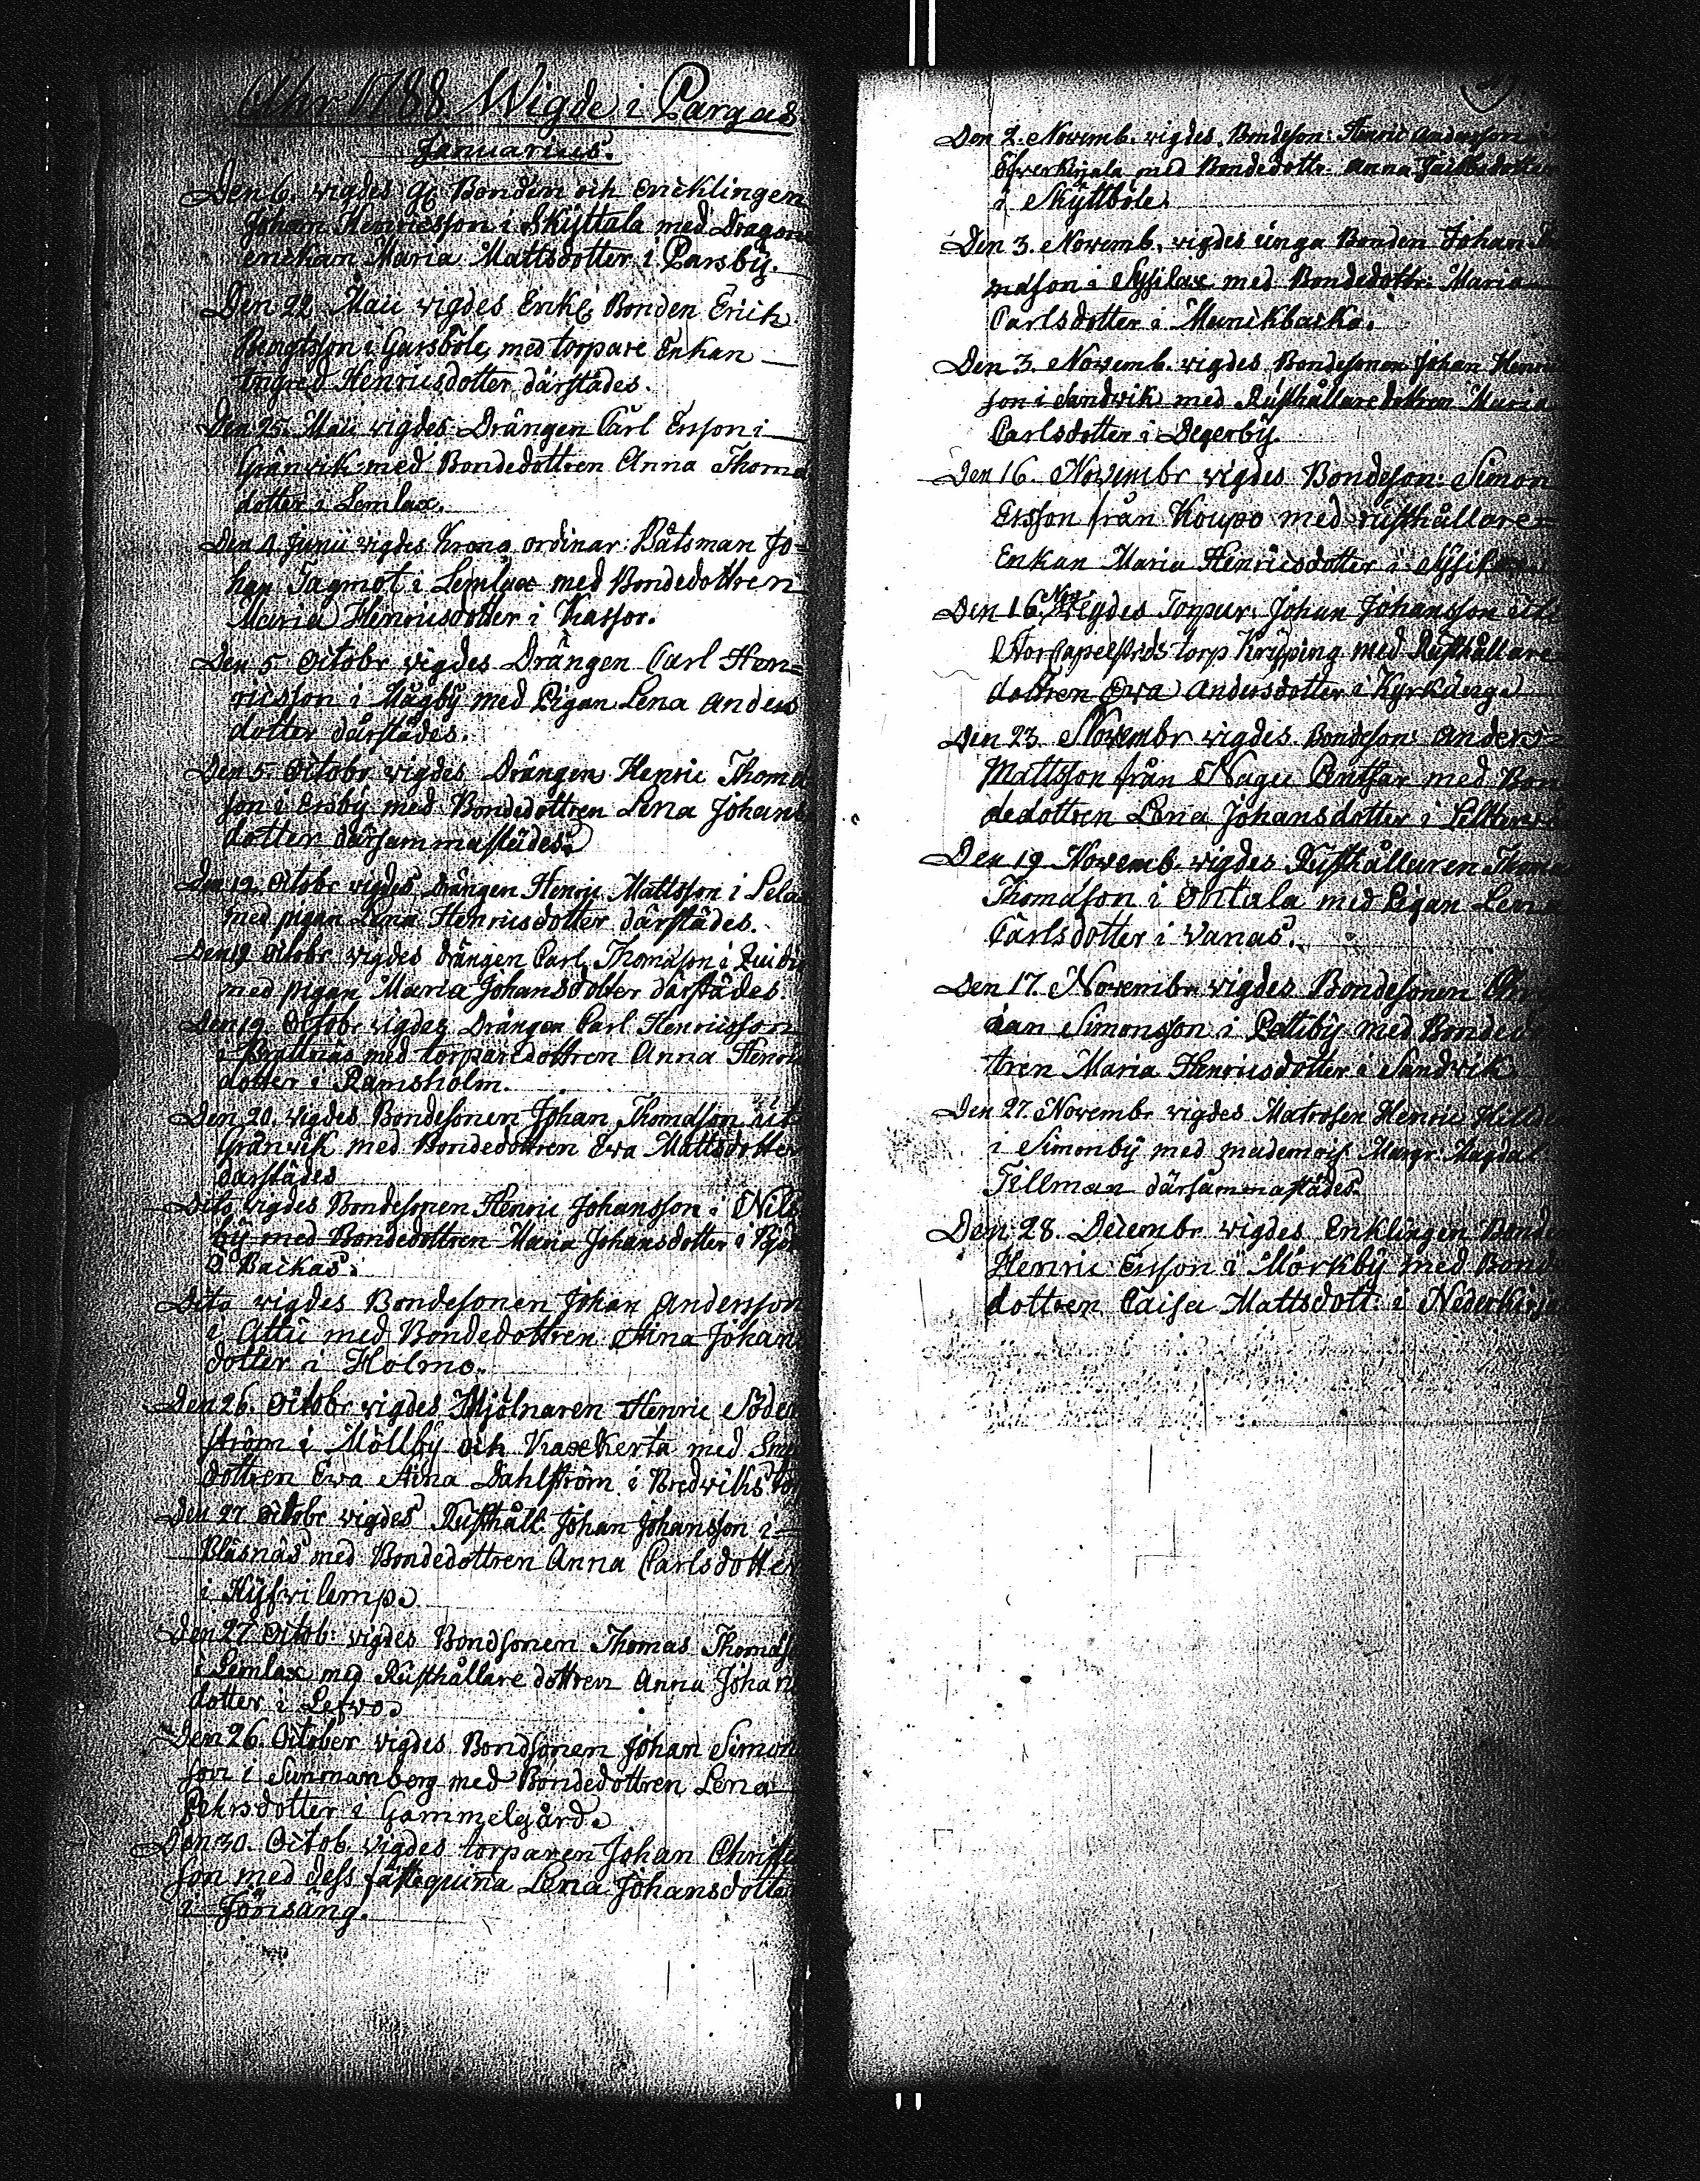 Åhr 1788. Wigde i Pargas
Januarius.
Den 6. wigdes gl. Bonden och enklingen
Johan Henricsson i Skyttala med Dragon
enckan Maria Mattsdotter i Parsby.
Den 22 Maii wigdes Enkl. Bonden Erich
Bengtsson i Garsböle med torpare Enkan
Ingred Henricsdotter därstädes.
Den 25. Maii wigdes Drängen Carl Ersson i
Gränwik med Bondedottren Anna Thoma
dotter i Lemlax.
Den 4 Junii wigdes Krono ordinar: Båtsman Jo=
han Tagmot i Lemlax med Bondedottren
Maria Henricsdotter i Kassor.
Den 5. Octobr wigdes Drängen Carl Hen=
ricsson i Mågby med Pigan Lena Anders
dotter därstädes.
Den 5. Octobr wigdes Drängen Henric Thoma
son i Ersby med Bondedottren Lena Johans
dotter därsammastädes.
Den 12. Octobr wigdes drängen Henric Mattsson i Pela
med pigan Lena Henricsdotter därstädes.
Den 19 Octobr wigdes drängen Carl Thomasson i
med pigan Maria Johansdotter därstädes.
Den 19. Octobr wigdes Drängen Carl Henricsson
i Brattnäs med torparedottren Anna Henric
dotter i Ramsholm.
Den 20. wigdes Bondesonen Johan Thomasson
Gränwik med Bondedottren Ewa Mattsdotter
därstädes
Dito wigdes Bondesonen Henric Johansson i Nils
by med Bondedottren Maria Johansdotter i
Backas.
Dito wigdes Bondesonen Johan Andersson
i Attu med Bondedottren Stina Johans
dotter i Holmo.
Den 26. Octobr wigdes Mjölnaren Henric Söder
ström i Möllby och Kraxkerta med Sme
dottren Ewa Stina Dahlström i Bredwiks tor
Den 27 Octobr wigdes Rusthåll: Johan Johansson i
Bläsnäs med Bondedottren Anna Carlsdotter
i Kyfwilemp.
Den 27 Octob: wigdes Bondsonen Thomas Thomas
i Lemlax med Rusthållare dottren Anna Johan
dotter i Lefwo.
Den 26. October wigdes Bondsonen Johan Simon
son i Sunnanberg med Bondedottren Lena
Pehrsdotter i Gammelgård.
Den 30. Octob. wigdes torparen Johan Christ
son med dess fästequina Lena Johansdotter
i Jönsäng.
Den 2. Novemb. wigdes Bondeson: Henric Andersson
Öfwerkirjala med Bondedottr. Anna Jacobsdotter
i Skyttböle.
Den 3. Novemb. wigdes unga Bonden Johan Th
masson i Sysilax med Bondedottr: Maria
Carlsdotter i Munckbacka.
Den 3. Novemb. wigdes Bondesonen Johan Henric
son i Sandwik med Rusthållaredottren Maria
Carlsdotter i Degerby.
Den 16. Novembr wigdes Bondeson: Simon
Ersson från Koupo med rusthållare
Enkan Maria Henricsdotter i Sysilax
Den 16. Nov. wigdes Torpar: Johan Johansson
torp Krypping med Rusthållare
dottren Ewa Andersdotter i Kyrkäng
Den 23. Novembr wigdes Bondeson: Anders
Mattsson från Nagu Pentsar med Bon
dedottren Lena Johansdotter i
Den 19. Novemb wigdes Rusthållaren Thomas
Thomasson i Ontala med Pigan Lena
Carlsdotter i Vanas.
Den 17. Novembr wigdes Bondesonen Chri
ian Simonsson i Petteby med Bonded
tren Maria Henricsdotter i Sandwik
Den 27. Novembr wigdes Matrosen Henric
i Simonby med mademois Margr. Magdal
Tillman därsammastädes.
Den 28. Decembr wigdes Enklingen Bonden
Henric Ersson i Mörkby med Bonde
dottren Caisa Mattsdott: i Nederkirja